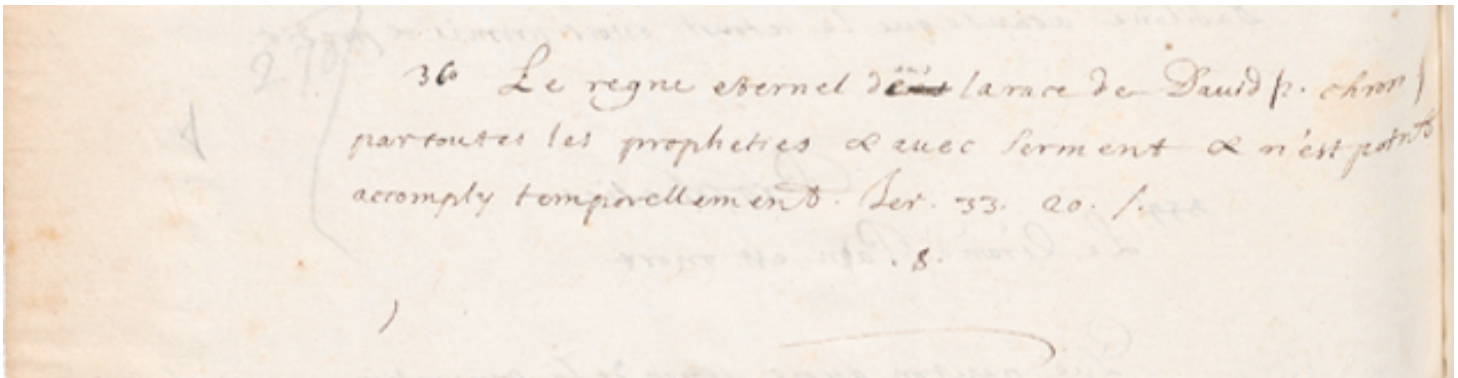 36 Le regne eternel de la race de Dauid (2. chron)
par toutes les propheties & auec serment & n'est point
accomply temporellement. Ier. 33. 20. /.
.8.